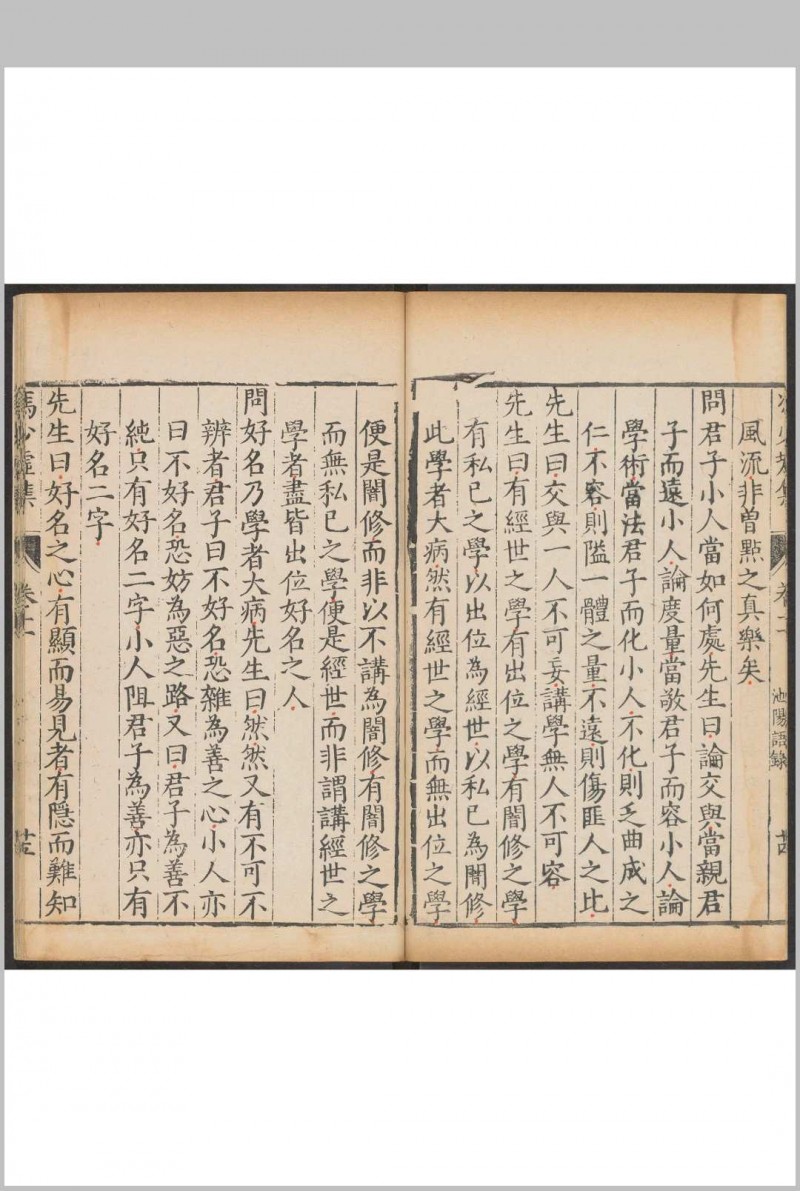 風流非曾點之真樂矣
問君子小人當如何處先生曰論交與當親君
子而遠小人論度量當敬君子而容小人論
學術當法君子而化小人不化則乏曲成之
仁不容則隘一體之量不遠則傷匪人之比
先生曰交與一人不可妄講學無人不可容
先生曰有經世之學有出位之學有闇修之學
有私已之學以出位為經世以私已為闇修
此學者大病然有經世之學而無出位之學
池陽語錄
便是闇修而非以不講為闇修有闇修之學
而無私已之學便是經世而非謂講經世之
學者盡皆出位好名之人
問好名乃學者大病先生曰然然又有不可不
辨者君子曰不好名恐雜為善之心小人亦
曰不好名恐妨為惡之路又曰君子為善不
純只有好名二字小人阻君子為善亦只有
好名二字
先生曰好名之心有顯而易見者有隱而難知
馮少虛集
卷十一